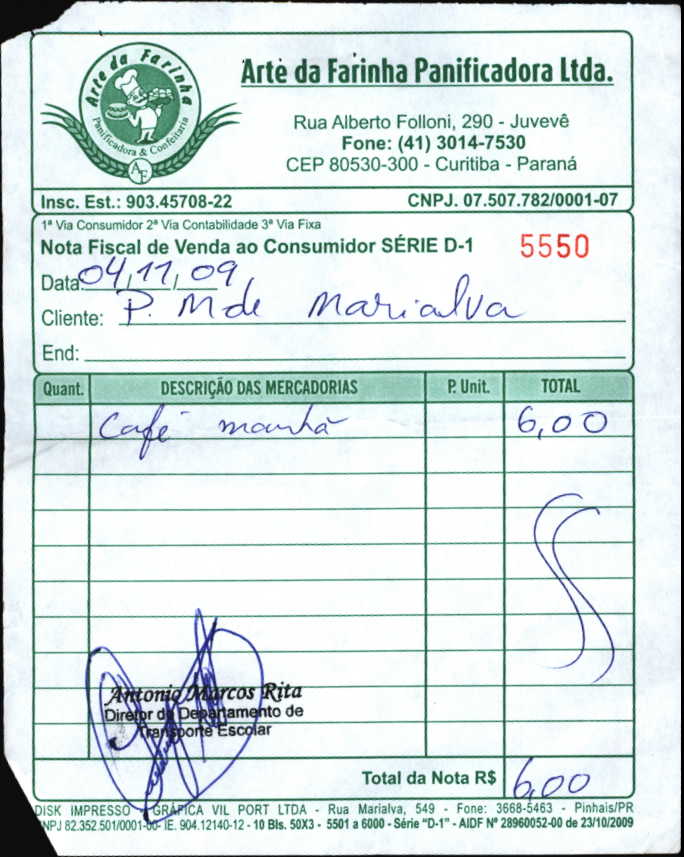 Arte da Farinha
Panificadora & Confeitaria
AF
Arte da Farinha Panificadora Ltda.
Rua Alberto Folloni, 290 - Juvevê
Fone: (41) 3014-7530
CEP 80530-300 - Curitiba - Paraná
Insc. Est.: 903.45708-22 CNPJ. 07.507.782/0001-07
1ª Via Consumidor 2ª Via Contabilidade 3ª Via Fixa
Nota Fiscal de Venda ao Consumidor SÉRIE D-1 5550
Data 04/11/09
Cliente: P. M de Marialva
End:
Quant. DESCRIÇÃO DAS MERCADORIAS P. Unit. TOTAL
Café manhã 6,00
Antonio Marcos Rita
Diretor do Departamento de
Transporte Escolar
Total da Nota R$ 6,00
DISK IMPRESSO - GRÁFICA VIL PORT LTDA - Rua Marialva, 549 - Fone: 3668-5463 - Pinhais/PR
CNPJ 82.352.501/0001-00- IE. 904.12140-12 - 10 Bls. 50X3 - 5501 a 6000 - Série "D-1" - AIDF Nº 28960052-00 de 23/10/2009